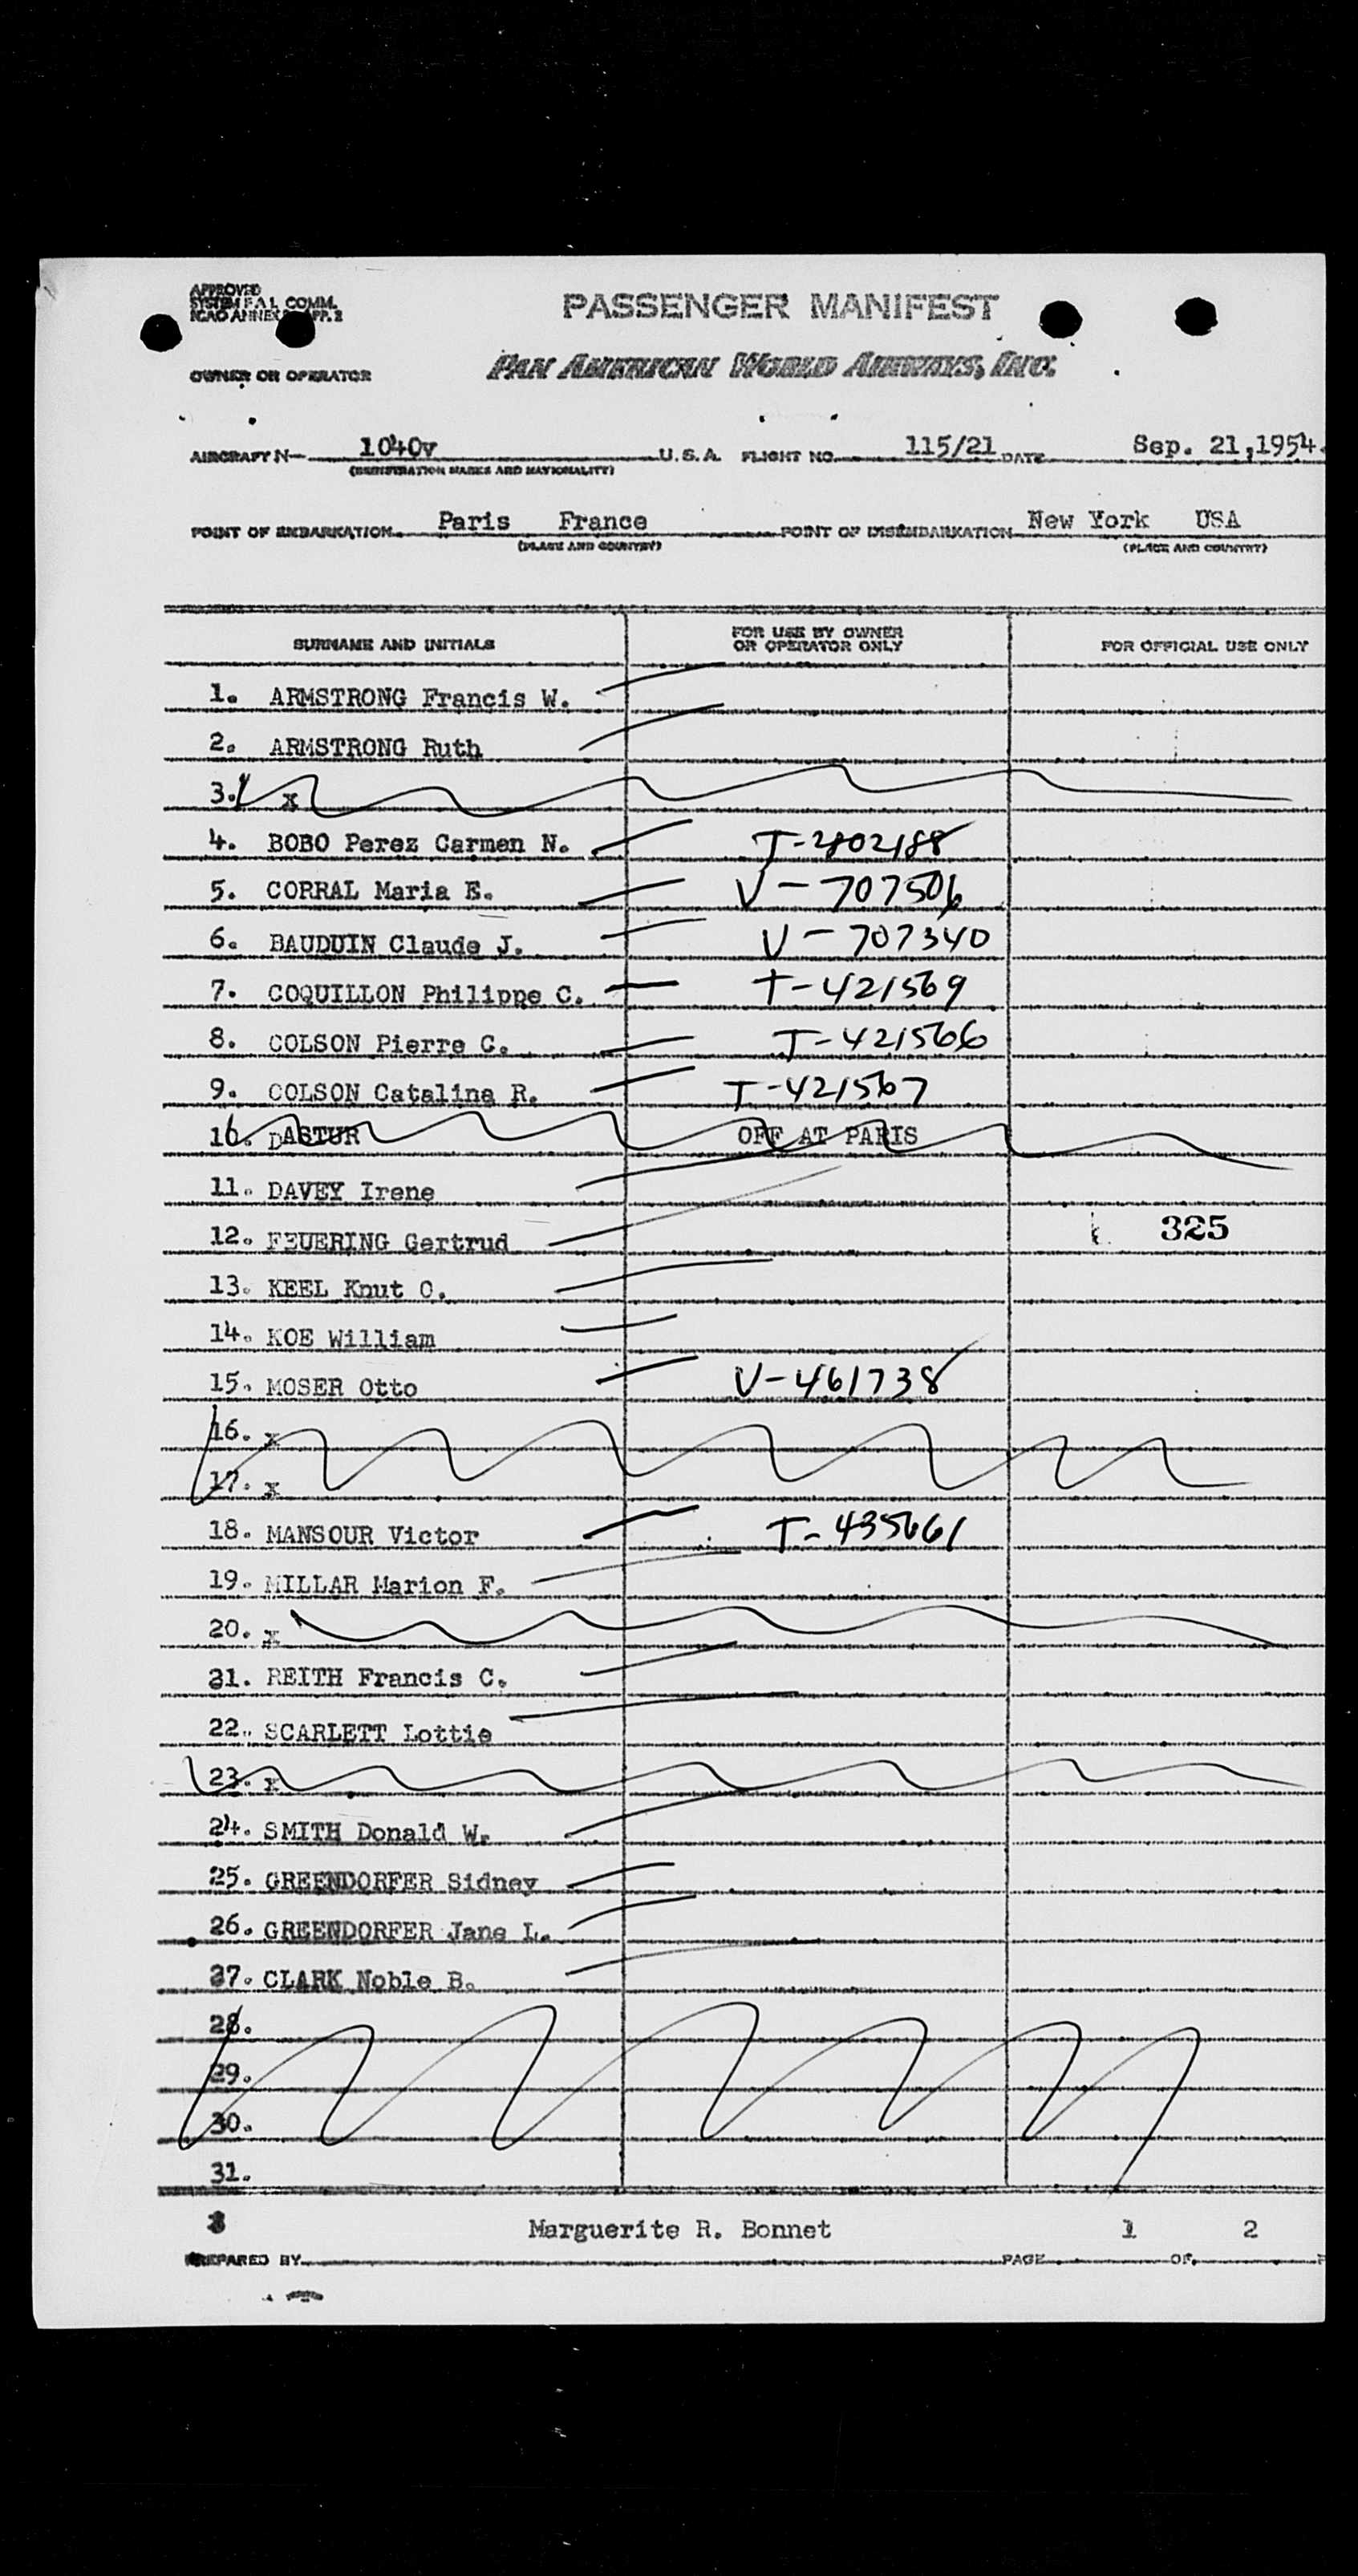 APPROVED
SYSTEM F A L COMM.
ICAO ANNEX APP. 2
PASSENGER MANIFEST
OWNER OR OPERATOR
PAN AMERICAN WORLD AIRWAYS, INC.
AIRCRAFT N- 1040v U.S.A. FLIGHT NO. 115/21 DATE Sep. 21,1954.
(REGISTRATION MARKS AND NATIONALITY)
POINT OF EMBARKATION Paris France POINT OF DISEMBARKATION New York USA
(PLACE AND COUNTRY) (PLACE AND COUNTRY)
SURNAME AND INITIALS FOR USE BY OWNER OR OPERATOR ONLY FOR OFFICIAL USE ONLY
1. ARMSTRONG Francis W.
2. ARMSTRONG Ruth
3. x
4. BOBO Perez Carmen N. T-2802188
5. CORRAL Maria E. V-707506
6. BAUDUIN Claude J. V-707340
7. COQUILLON Philippe C. T-421569
8. COLSON Pierre C. T-421566
9. COLSON Catalina R. T-421567
10. DASTUR OFF AT PARIS
11. DAVEY Irene
12. FEUERING Gertrud 325
13. KEEL Knut O.
14. KOE William
15. MOSER Otto V-461738
16. x
17. x
18. MANSOUR Victor T-435661
19. MILLAR Marion F.
20. x
21. REITH Francis C.
22. SCARLETT Lottie
23. x
24. SMITH Donald W.
25. GREENDORFER Sidney
26. GREENDORFER Jane L.
27. CLARK Noble B.
28.
29.
30.
31.
Marguerite R. Bonnet 1 2
PREPARED BY PAGE OF